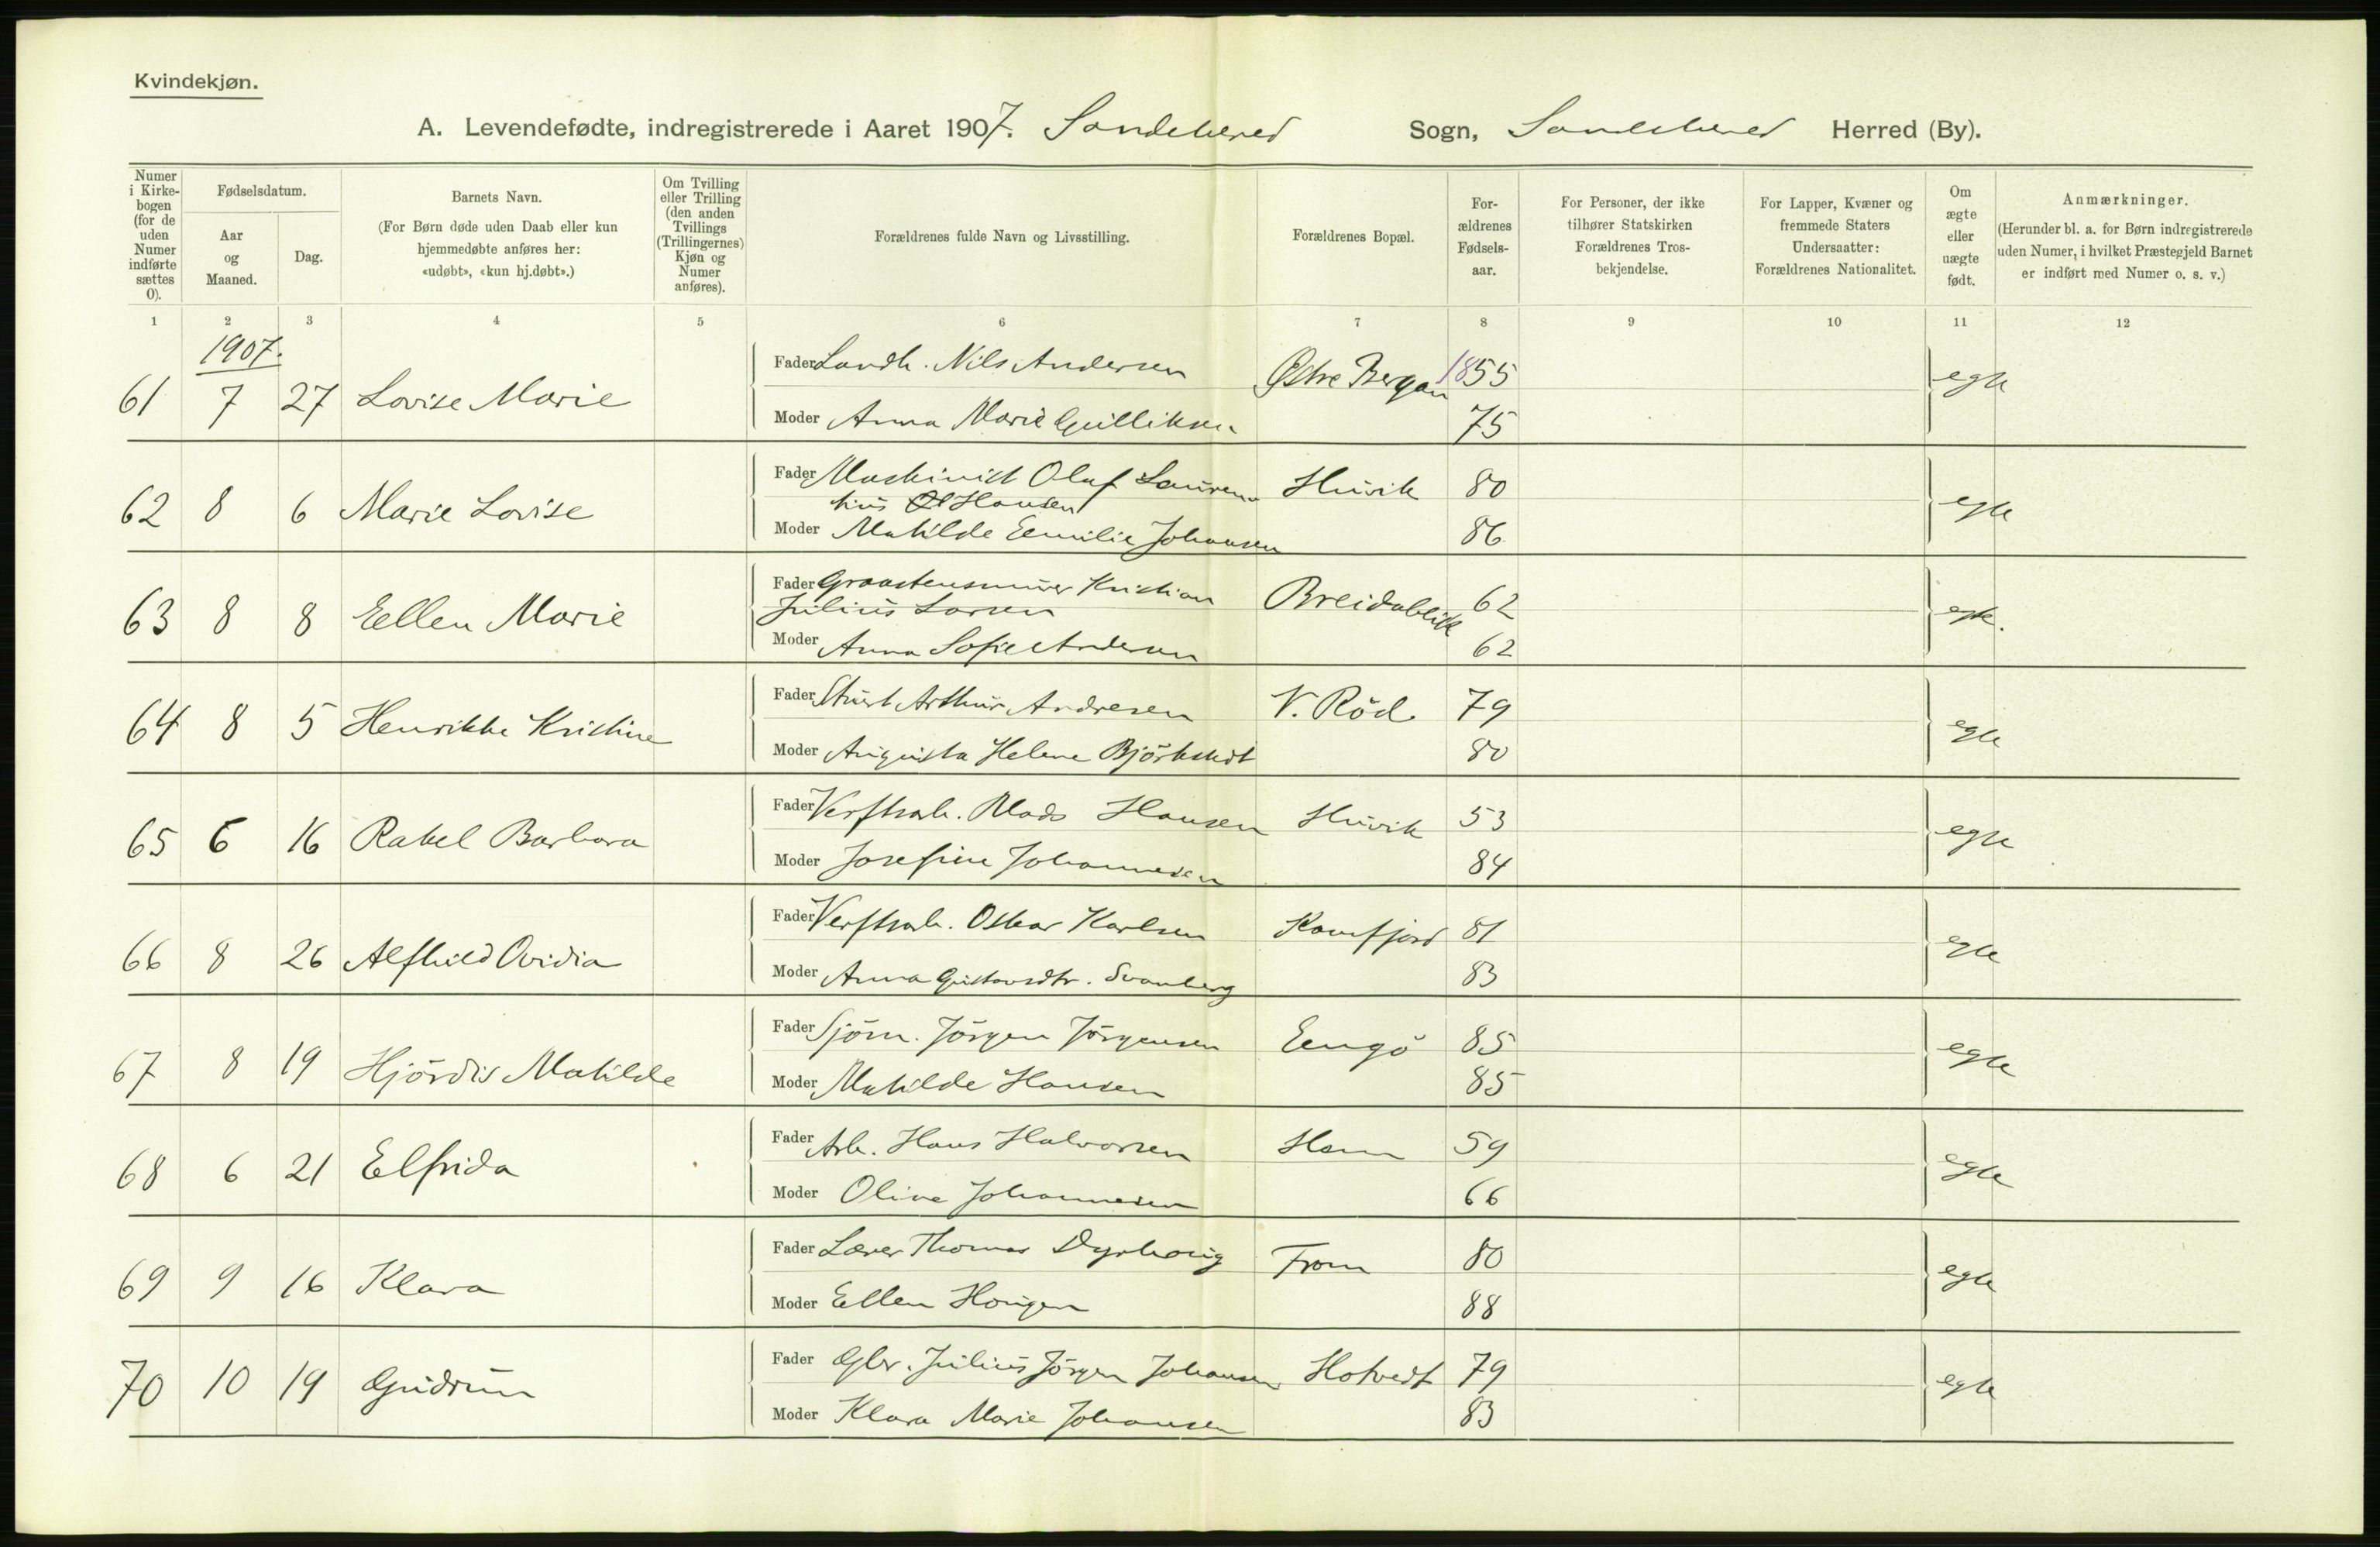 Kvindekjøn.
A. Levendefødte, indregistrerede i Aaret 1907. Sandeherred Sogn, Sandeherred Herred (By).
Numer i Kirkebogen (for de uden Numer indførte sættes 0).
Fødselsdatum.
Aar og Maaned.
Dag.
Barnets Navn.
(For Børn døde uden Daab eller kun hjemmedøbte anføres her: «udøbt», «kun hj.døbt».)
Om Tvilling eller Trilling (den anden Tvillings (Trillingernes) Kjøn og Numer anføres).
Forældrenes fulde Navn og Livsstilling.
Forældrenes Bopæl.
Forældrenes Fødselsaar.
For Personer, der ikke tilhører Statskirken Forældrenes Trosbekjendelse.
For Lapper, Kvæner og fremmede Staters Undersaatter: Forældrenes Nationalitet.
Om ægte eller uægte født.
Anmærkninger.
(Herunder bl. a. for Børn indregistrerede uden Numer, i hvilket Præstegjeld Barnet er indført med Numer o. s. v.)
1 2 3 4 5 6 7 8 9 10 11 12
1907.
61 7 27 Lovise Marie Fader Landh. Nils Andersen Østre Bergan 1855 egte
Moder Anna Marie Gulliksen 75
62 8 6 Marie Lovise Fader Maskinist Oluf Lauren- Huvik 80 egte
tius Hansen
Moder Mathilde Eemilie Johansen 86
63 8 8 Eellen Marie Fader Graastensmurer Kristian Breidablik 62 egte.
Julius Larsen
Moder Anna Sofie Andersen 62
64 8 5 Henrikke Kristine Fader Stuert Arthur Andresen V. Röd 79 egte
Moder Augusta Helene Björkstedt 80
65 6 16 Rakel Barbara Fader Verftsarb. Mads Hansen Huvik 53 egte
Moder Josefine Johannesen 84
66 8 26 Alfhild Ovidia Fader Verftsarb. Oskar Karlsen Kamfjord 81 egte
Moder Anna Gustavsdtr. Svanberg 83
67 8 19 Hjördis Matilde Fader Sjöm. Jörgen Jörgensen Eengö 85 egte
Moder Matilde Hansen 85
68 6 21 Elfrida Fader Arb. Hans Halvorsen Hem 59 egte
Moder Olive Johannesen 66
69 9 16 Klara Fader Lærer Thomas Dyrhaug From 80 egte
Moder Eellen Haugen 88
70 10 19 Gudrun Fader Gbr. Julius Jörgen Johansen Hotvedt 79 egte
Moder Klara Marie Johansen 83